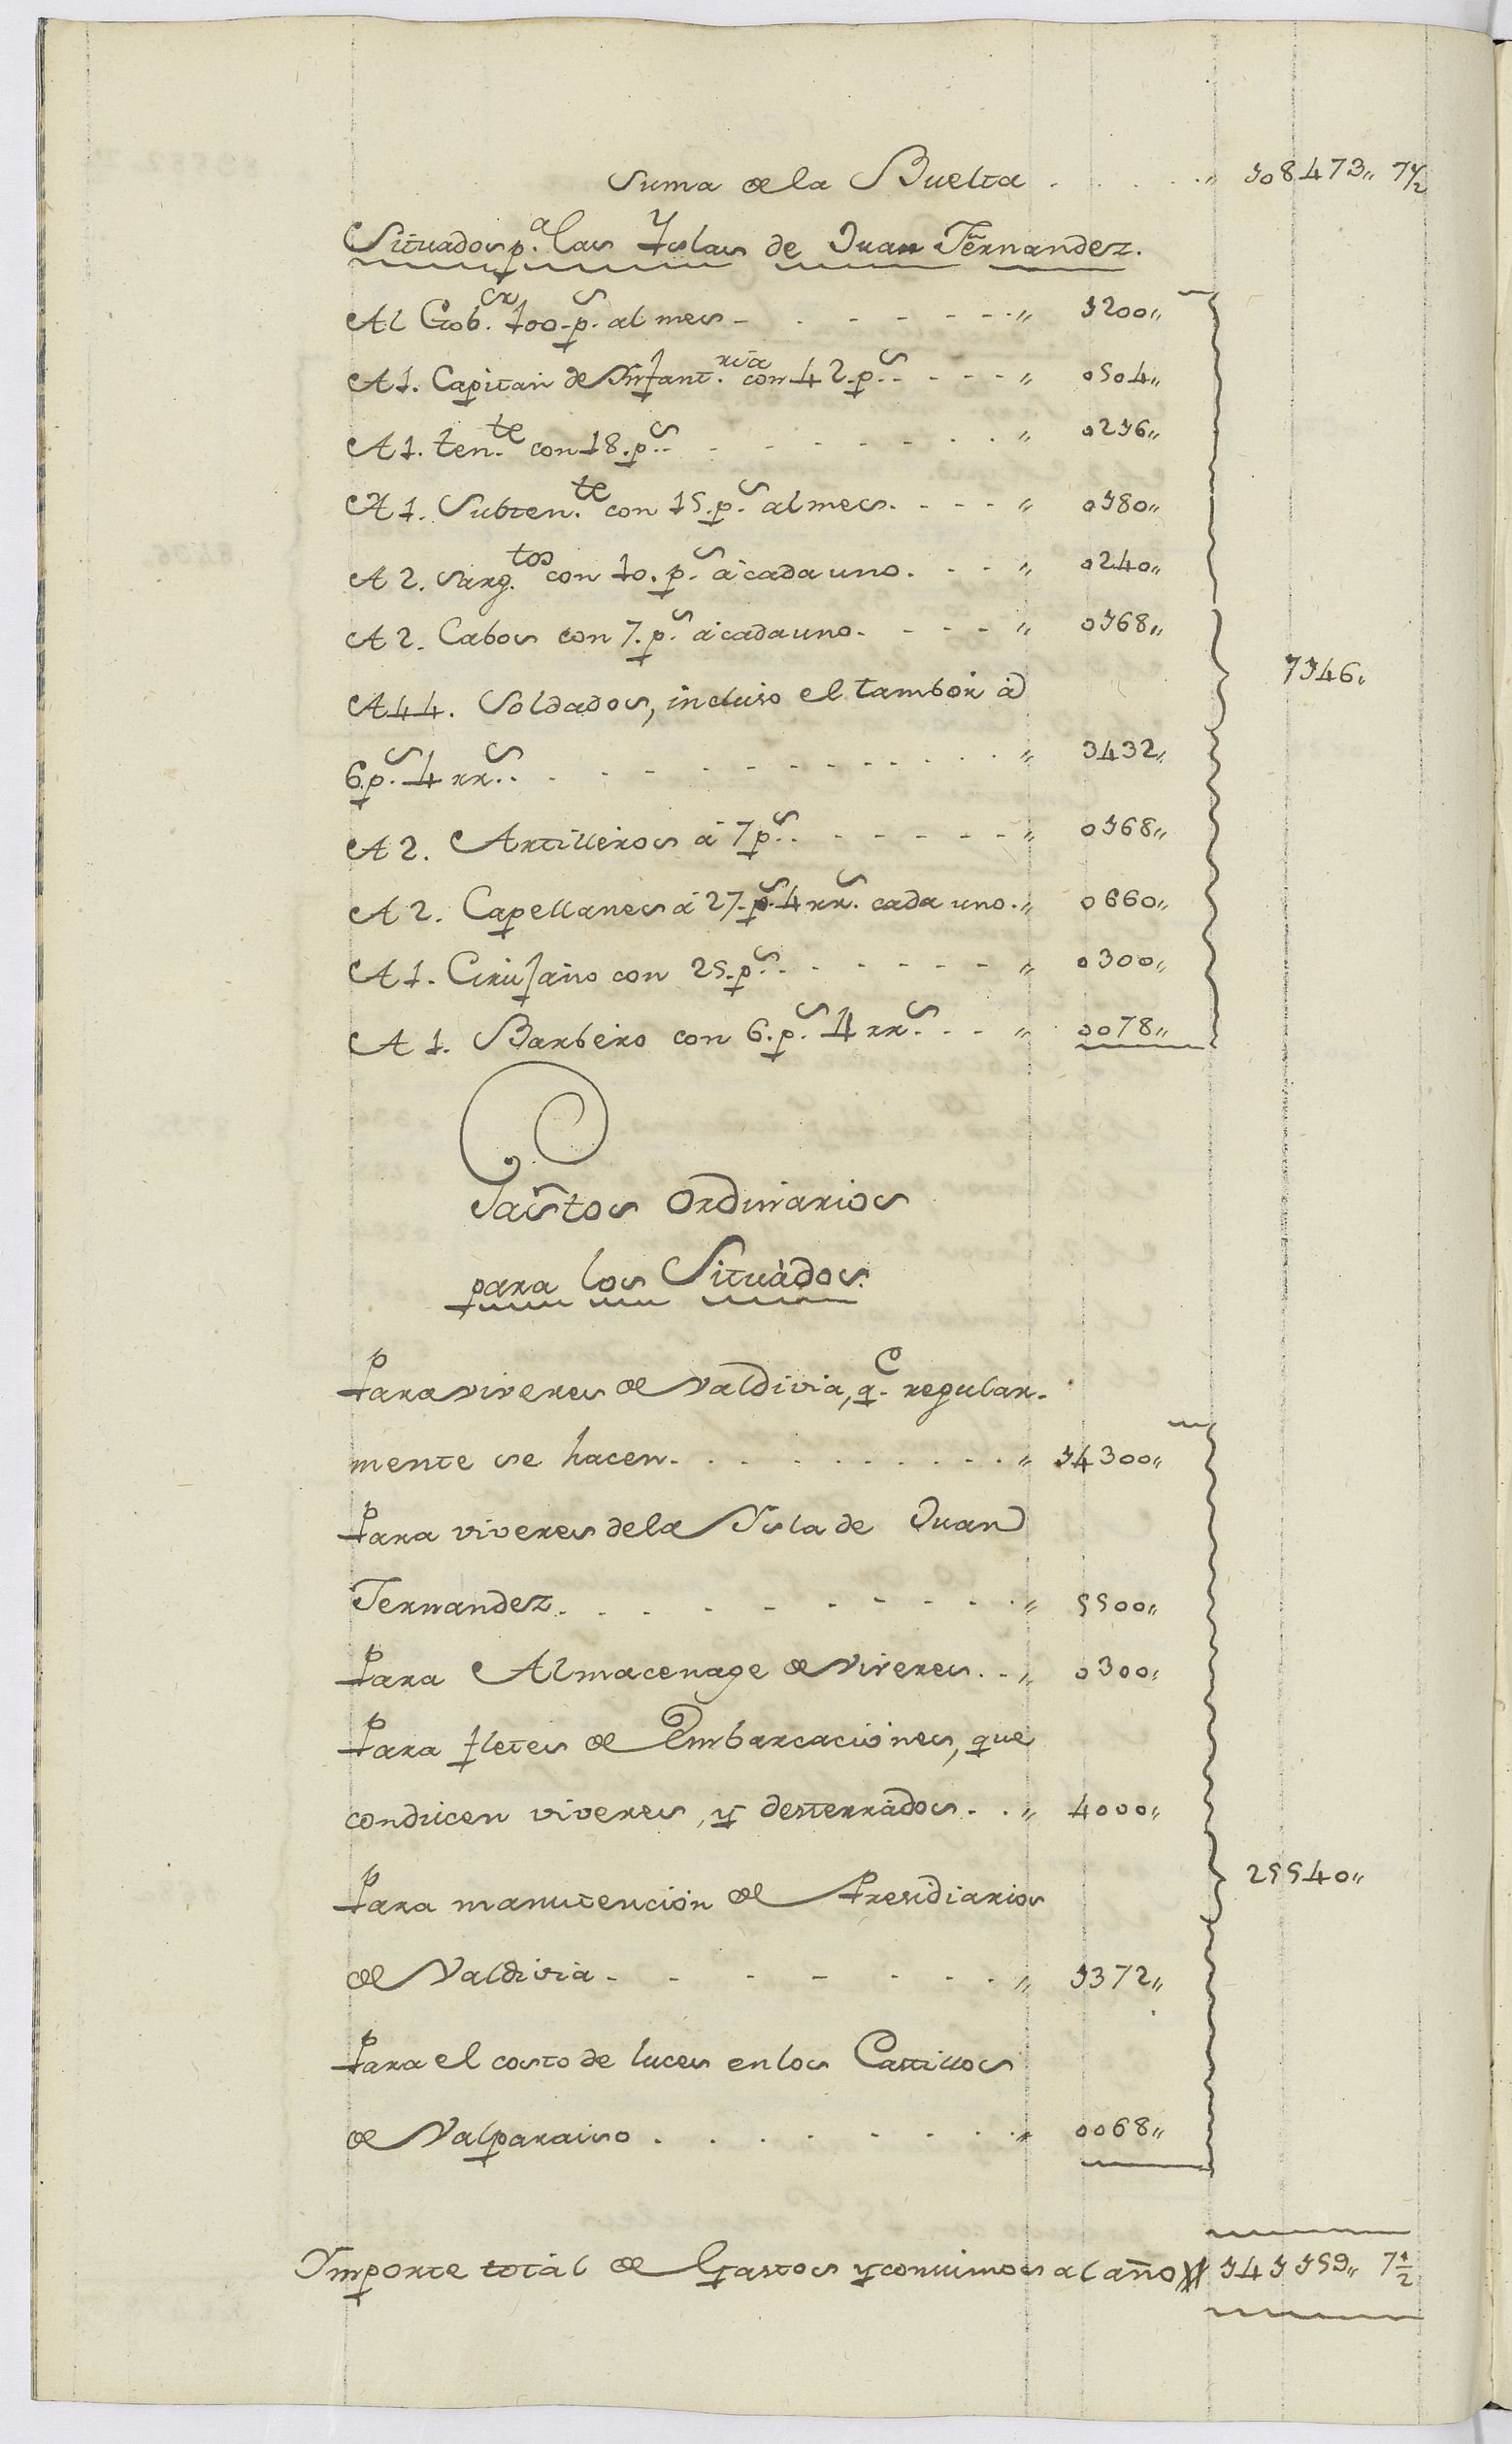 Suma de la Buelta . . . . " 108473" 7 1/2
Situados p.ª las Yslas de Juan Fernandez.
Al Gob.or 100. p.s al mes - - - - - " 1200"
A 1. Capitan de Ynfant.ria con 42. p.s - - - - " 0504"
A 1. ten.te con 18. p.s - - - - - - " 0216"
A 1. Subten.te con 15. p.s al mes. - - - " 0180"
A 2. Sarg.tos con 10. p.s a cada uno. - - " 0240"
A 2. Cabos con 7. p.s a cada uno. - - - " 0168"
7146"
A 44. Soldados, incluso el tambor à
6. p.s 4 rr.s . - - - - - - - - " 3432"
A 2. Artilleros à 7 p.s . - - - - - " 0168"
A 2. Capellanes à 27. p.s 4 rr.s cada uno. " 0660"
A 1. Cirujano con 25. p.s - - - - - " 0300"
A 1. Barbero con 6. p.s 4 rr.s - - " 0078"
Gastos Ordinarios
para los Situados.
Para viveres de Valdivia, q.e regular-
mente se hacen. . . . . . . . " 14300"
Para viveres de la Ysla de Juan
Fernandez. . - - - - - - - " 5500"
Para Almacenage de viveres. - " 0300"
Para fletes de Embarcaciones, que
conducen viveres, y desterrados. . " 4000"
25540"
Para manutencion de Presidiarios
de Valdivia. - - - - - - " 1372"
Para el costo de luces en los Castillos
de Valparaiso . . . . . . . " 0068"
Ymporte total de Gastos y consumos al año 141159" 7 1/2